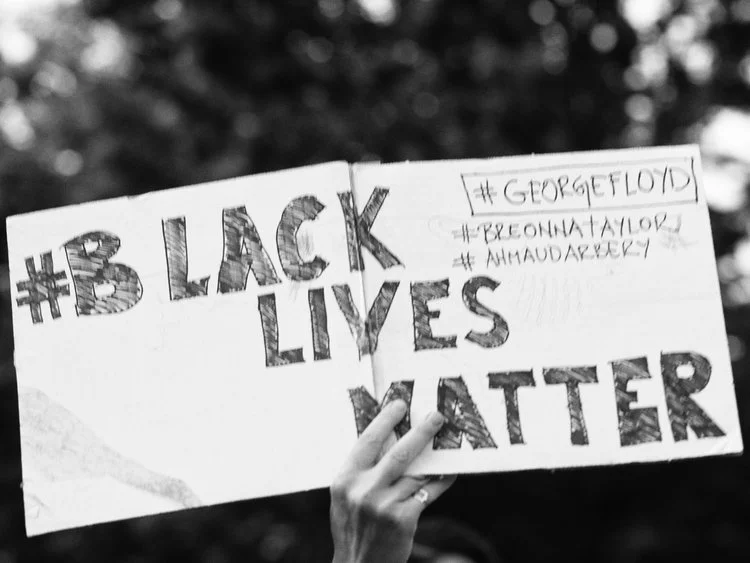 #BLACK
LIVES
MATTER
#GEORGEFLOYD
#BREONNATAYLOR
#AHMAUDARBERY